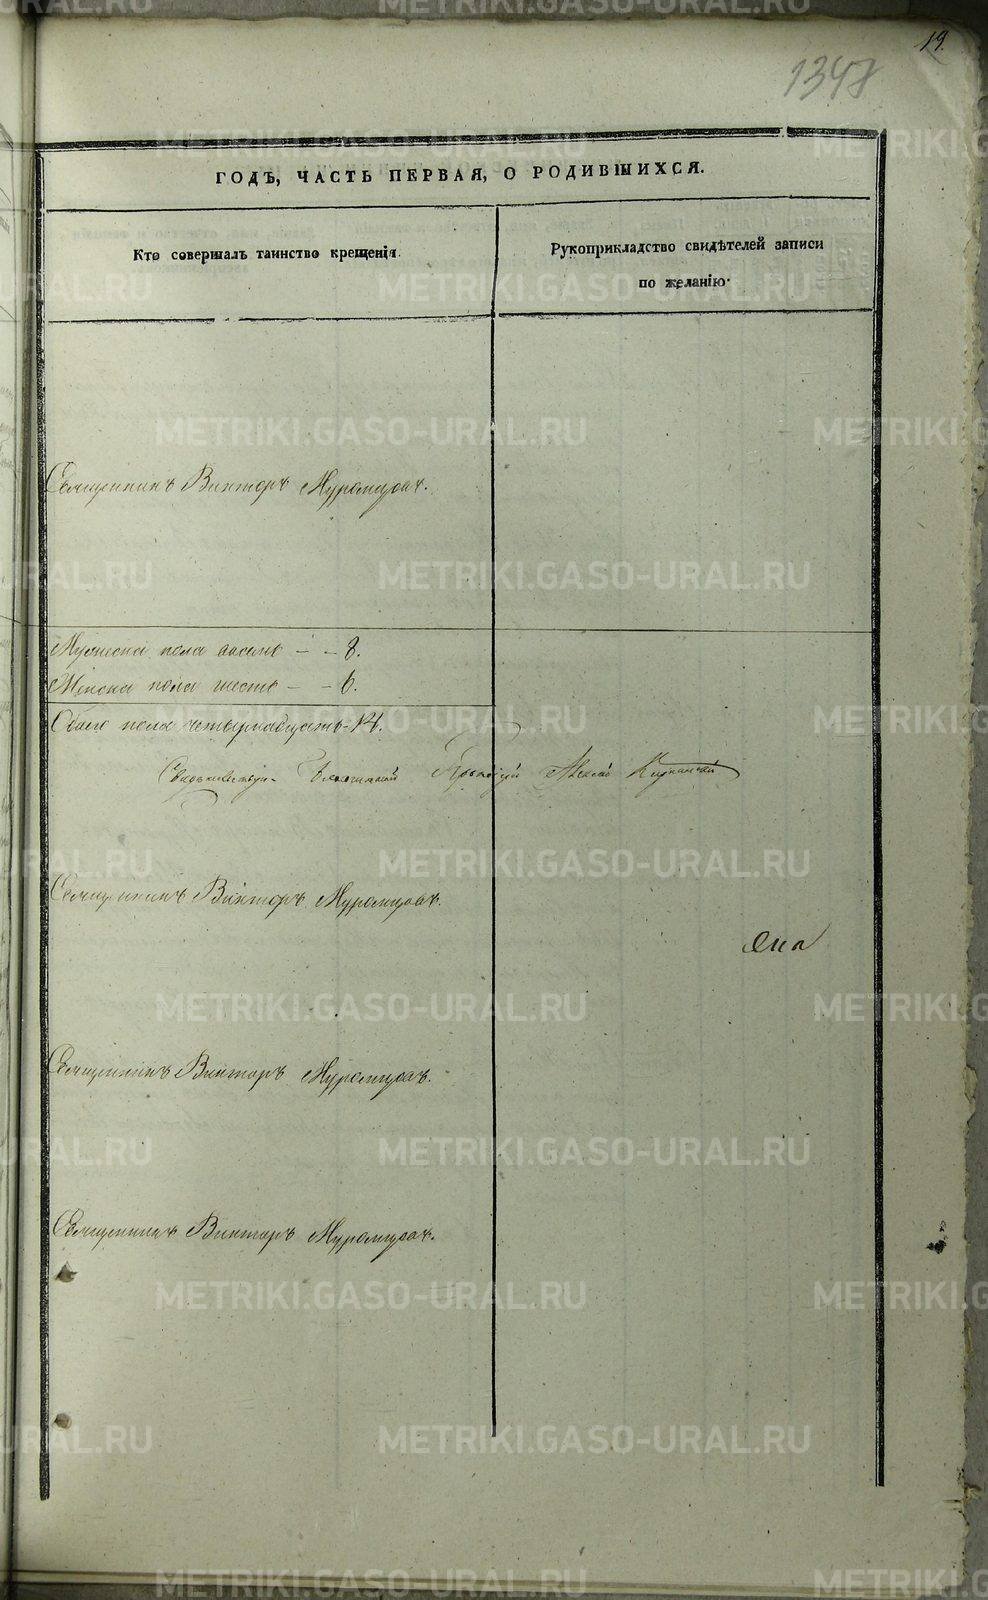 19.
1347
ГОДЪ, ЧАСТЬ ПЕРВАЯ, О РОДИВШИХСЯ.
Кто совершалъ таинство крещенія.
Рукоприкладство свидѣтелей записи
по желанію.
Священникъ Викторъ Муромцовъ.
Мужеска пола восемь - - 8.
Женска пола шесть - - 6.
Обоего пола четырнадцать - 14.
Священникъ Викторъ Муромцовъ.
Священникъ Викторъ Муромцовъ.
Священникъ Викторъ Муромцовъ.
METRIKI.GASO-URAL.RU